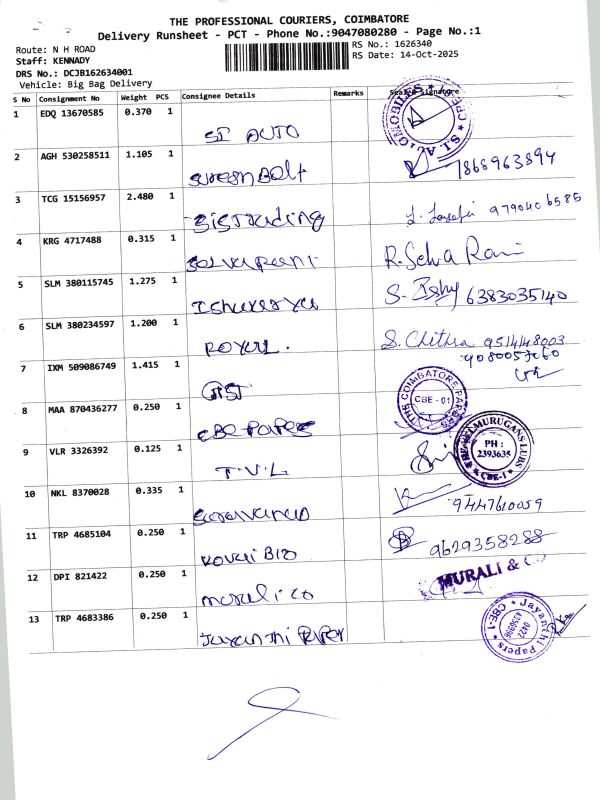 THE PROFESSIONAL COURIERS, COIMBATORE
Delivery Runsheet - PCT - Phone No.:9047080280 - Page No.:1
Route: N H ROAD
RS No.: 1626340
Staff: KENNADY
RS Date: 14-Oct-2025
DRS No.: DCJB162634001
Vehicle: Big Bag Delivery
S No Consignment No Weight PCS Consignee Details Remarks Seal & Signature
1 EDQ 13670585 0.370 1
SI AUTO
S.I. AUTOMOBILES CBE
2 AGH 530258511 1.105 1
Suresh Bolt 7868963894
3 TCG 15156957 2.480 1
SIS Trading 9790406585
4 KRG 4717488 0.315 1
Selvarani R. Selva Rani
5 SLM 380115745 1.275 1
Ishwarya 6383035140
6 SLM 380234597 1.200 1
ROYAL. S. Chithra 9514148003
9080057060
7 IXM 509086749 1.415 1
GST
8 MAA 870436277 0.250 1
CBE PAPERS
THE COIMBATORE PAPERS
CBE - 01
9 VLR 3326392 0.125 1
T.V.L
MURUGANS LUBS
PH :
2393635
CBE-1
10 NKL 8370028 0.335 1
Saravanas 9447610059
11 TRP 4685104 0.250 1
Kovai Bio 9629358288
12 DPI 821422 0.250 1
Murali co
MURALI & CO
13 TRP 4683386 0.250 1
Jayanthi Paper
Jayanthi Papers
CBE-1
0422